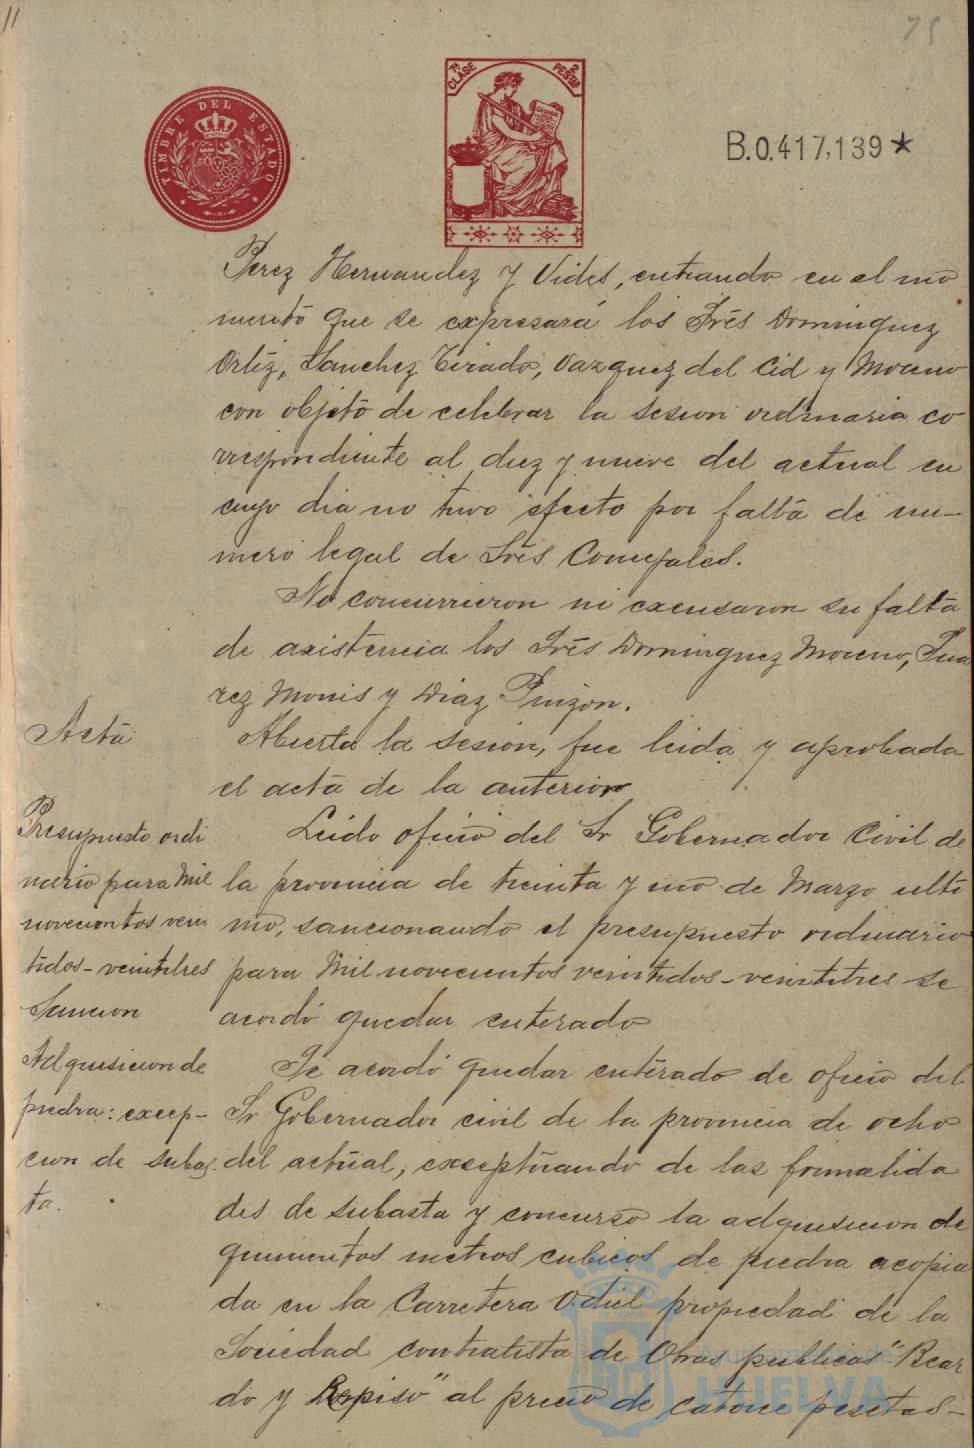 11
75
TIMBRE DEL ESTADO
7ª CLASE
2 PESTAS
B.0.417,139*
Perez Hernandez y Vides, entrando en el mo
mento que se expresará los Srés Dominguez
Ortíz, Sanchez Tirado, Vazquez del Cid y Moreno
con objeto de celebrar la sesion ordinaria co
rrespondiente al diez y nueve del actual en
cuyo dia no tuvo efecto por falta de nu-
mero legal de Srés Concejales.
No concurrieron ni excusaron su falta
de axistencia los Srés Dominguez Moreno, Sua
rez Monis y Diaz Pinzon.
Acta
Abierta la sesion, fue leida y aprobada
el acta de la anterior
Presupuesto ordi
nario para Mil
novecientos vein
tidos-veintitres
Sancion
Leido oficio del Sr Gobernador Civil de
la provincia de treinta y uno de Marzo ulti
mo, sancionando el presupuesto ordinario
para Mil novecientos veintidos-veintitres se
acordó quedar enterado
Adquisicion de
piedra: excep-
cion de subas
ta.
Se acordó quedar enterado de oficio del
Sr Gobernador civil de la provincia de ocho
del actual, exceptuando de las formalida
des de subasta y concurso la adquisicion de
quinientos metros cubicos de piedra acopia
da en la Carretera Odiel propiedad de la
Sociedad contratista de Obras publicas "Bear
do y Repiso" al precio de catorce pesetas-
Ayuntamiento de
HUELVA